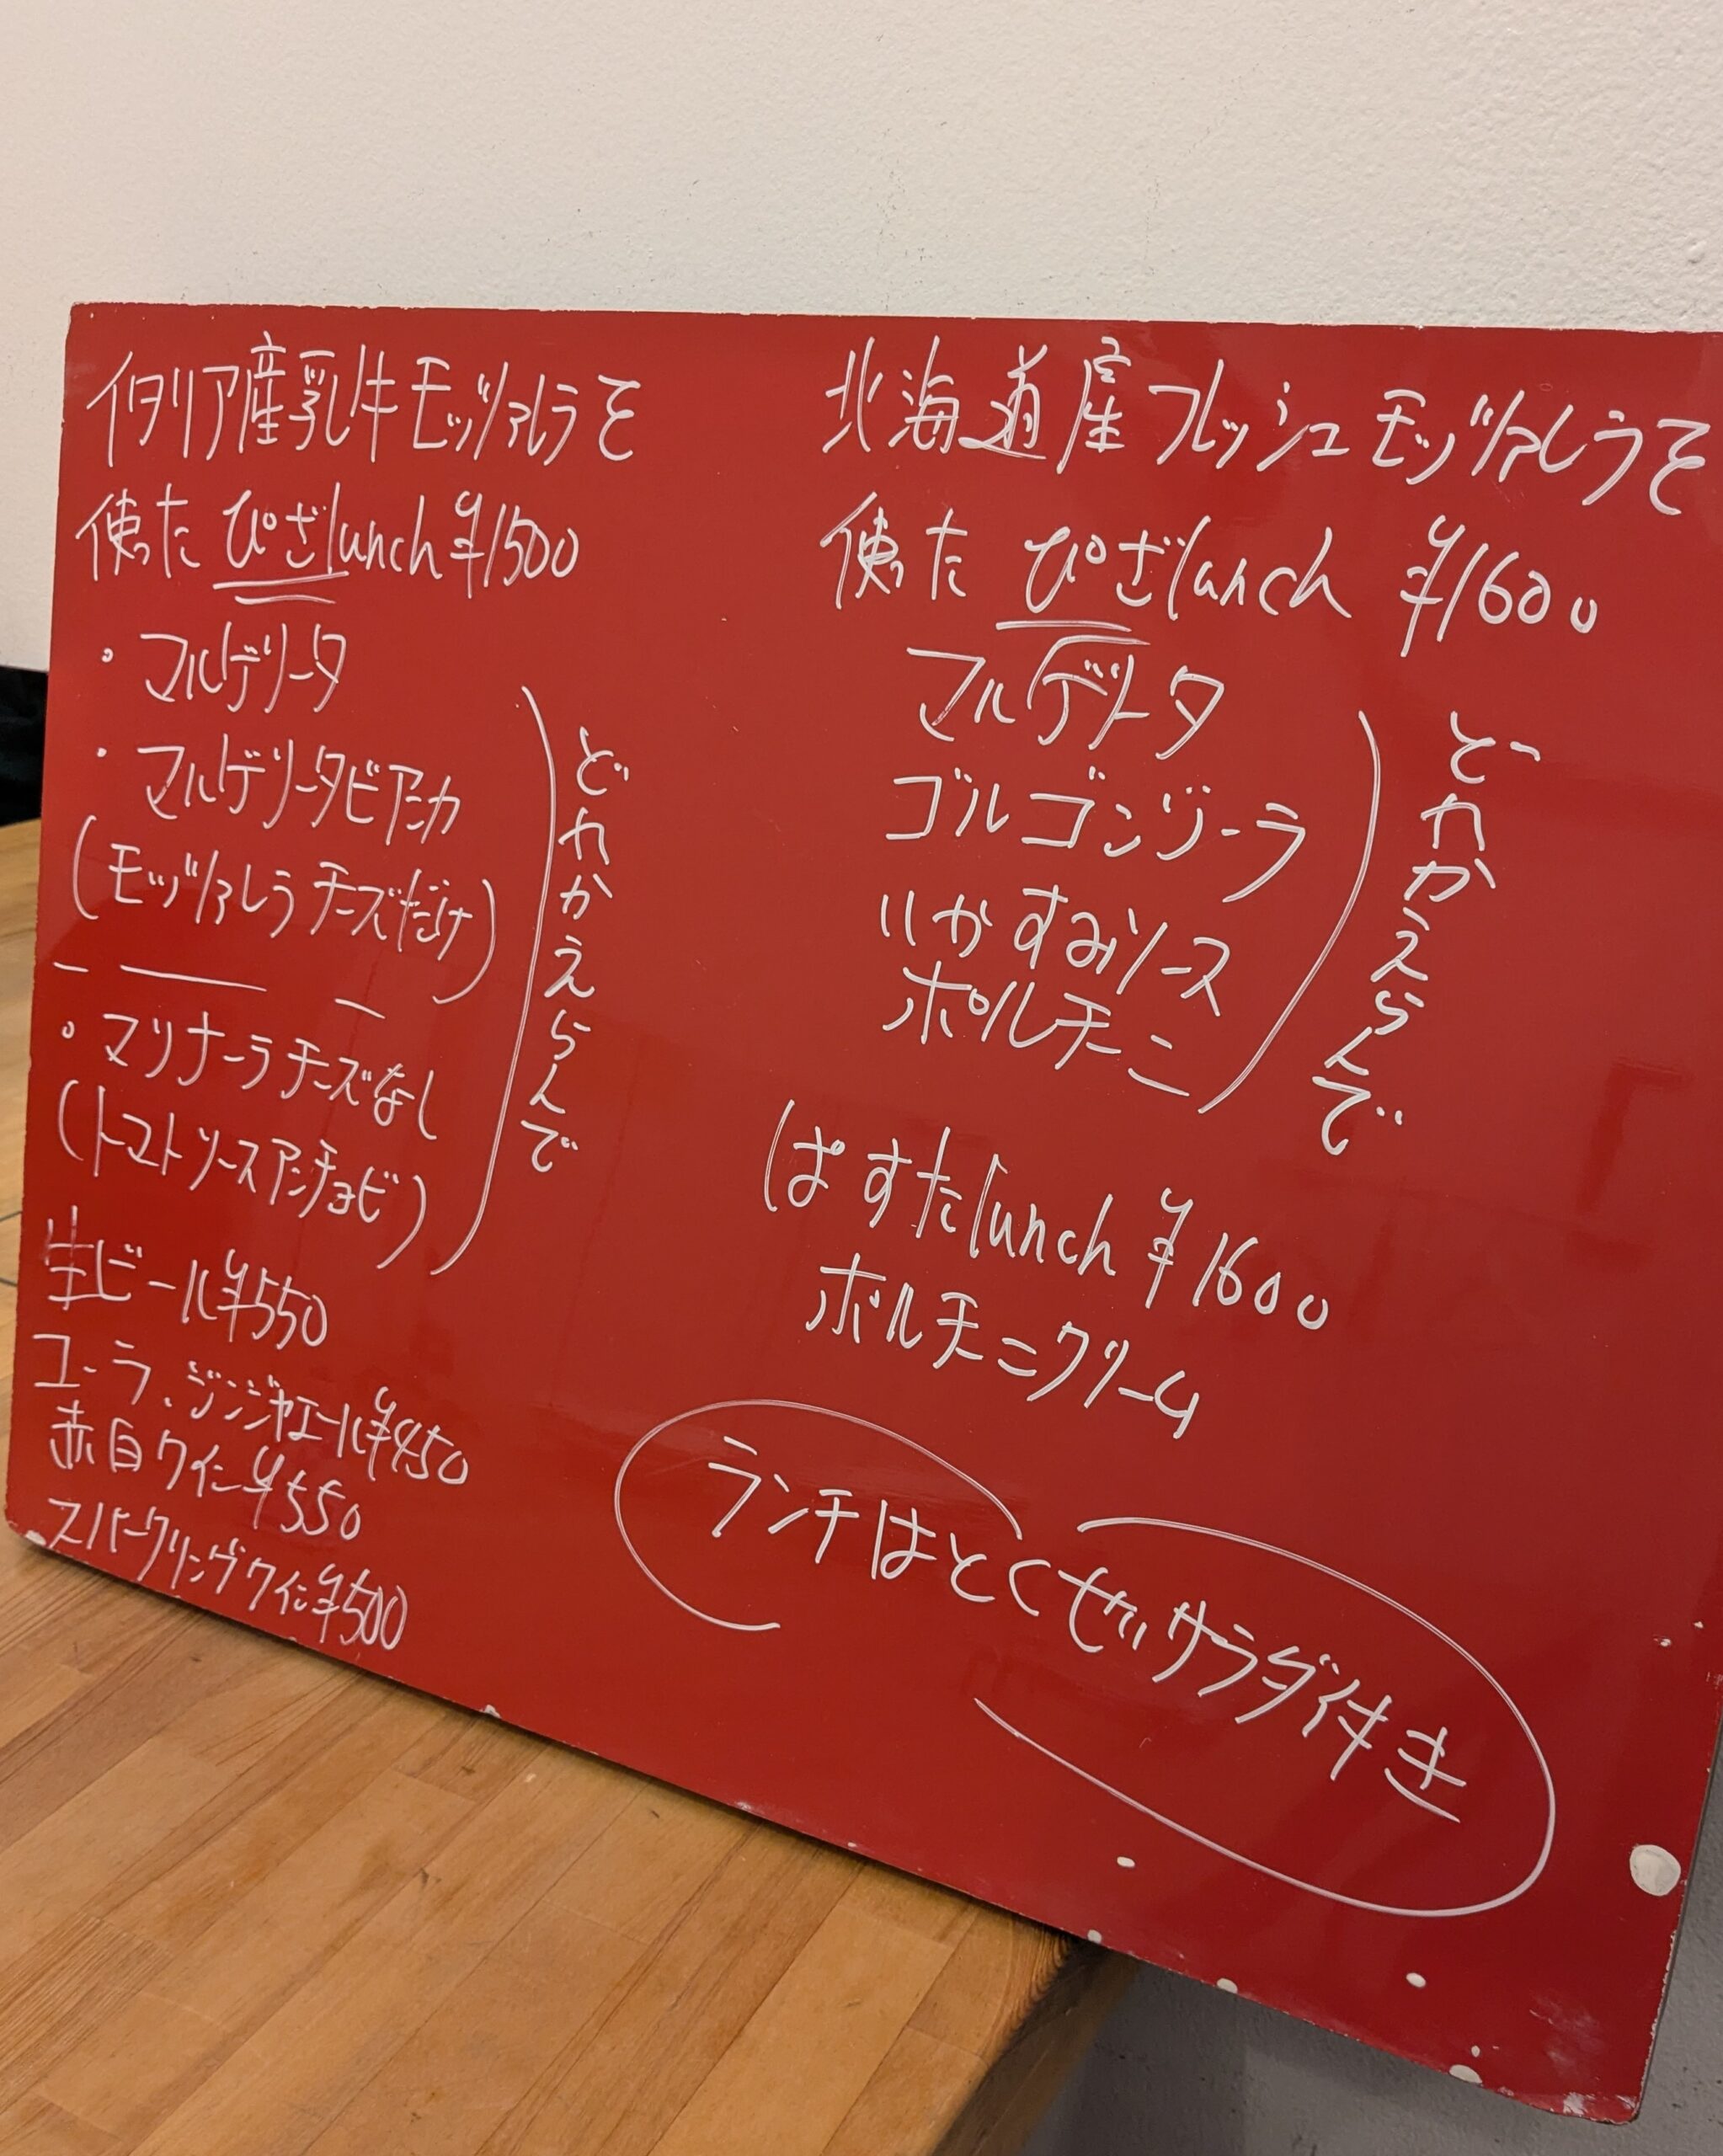 イタリア産乳牛モッツァレラを
使った ぴざlunch ¥1500
・マルゲリータ
・マルゲリータビアンカ
(モッヅァレラチーズだけ)
・マリナーラチーズなし
(トマトソースアンチョビ)
どれかえらんで
生ビール¥550
コーラ、ジンジャエール¥450
赤白ワイン¥550
スパークリングワイン¥500
北海道産フレッシュモッヅァレラを
使った ぴざlunch ¥1600
マルゲリータ
ゴルゴンゾーラ
いかすみソース
ポルチーニ
どれかえらんで
ぱすたlunch ¥1600
ポルチーニクリーム
ランチはとくせいサラダ付き